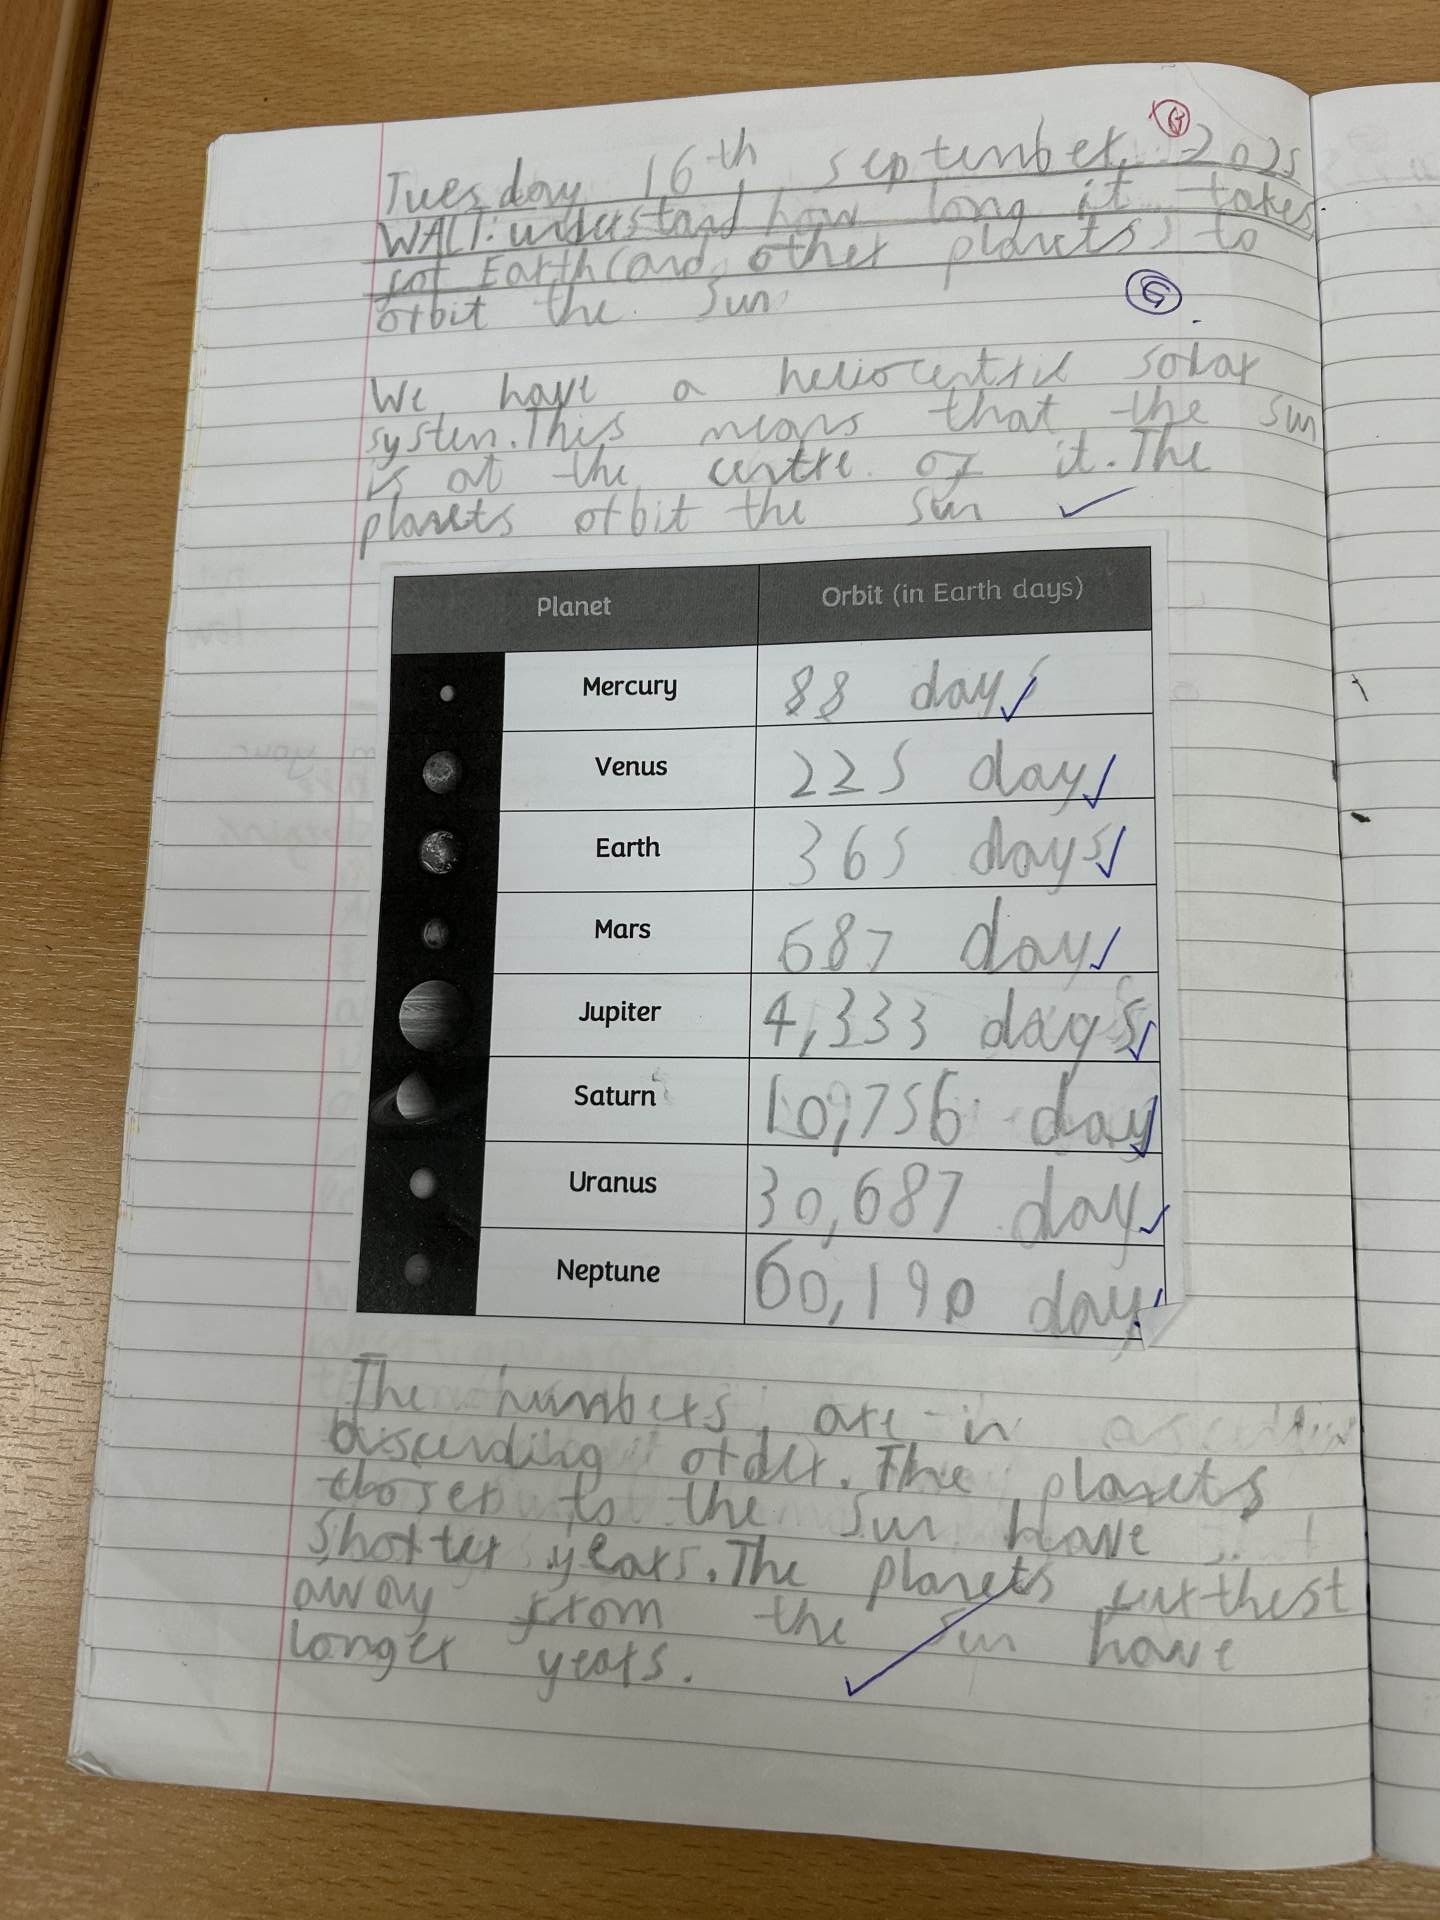 Tuesday 16th september 2025
WALT: understand how long it takes
for Earth (and other planets) to
orbit the Sun
G
We have a heliocentric solar
system. This means that the sun
is at the centre of it. The
planets orbit the Sun
Planet Orbit (in Earth days)
Mercury 88 days
Venus 225 days
Earth 365 days
Mars 687 days
Jupiter 4,333 days
Saturn 10,756 days
Uranus 30,687 days
Neptune 60,190 days
The numbers are in
ascending order. The planets
closer to the Sun have
shorter years. The planets furthest
away from the Sun have
longer years.